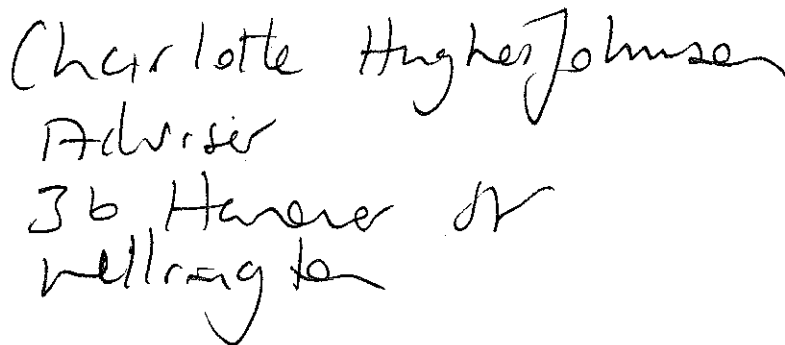 Charlotte Hughes Johnson
Adviser
36 Hanover St
Wellington